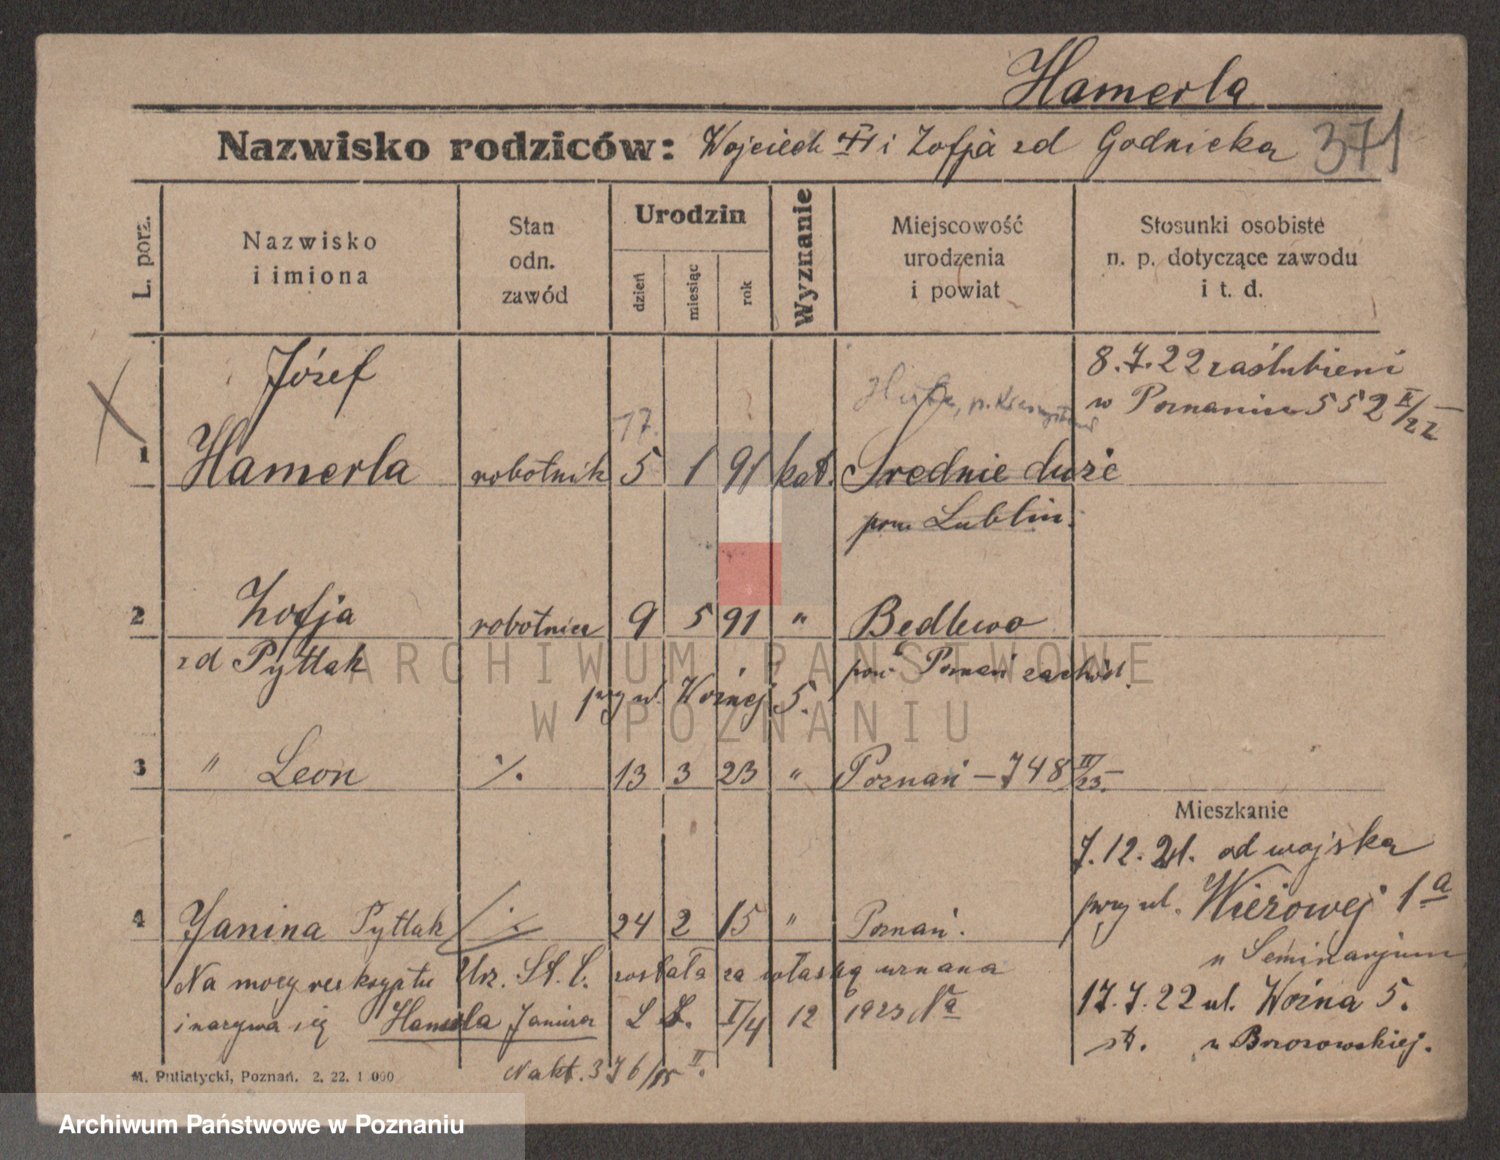 Hamerla
Nazwisko rodziców: Wojciech i Zofja zd Godnicka 371
L. porz.
Nazwisko i imiona
Stan odn. zawód
Urodzin
dzień miesiąc rok
Wyznanie
Miejscowość urodzenia i powiat
Stosunki osobiste n. p. dotyczące zawodu i t. d.
Józef
8.7.22 zaślubieni
w Poznaniu 552 II/22
17.
1 Hamerla robotnik 5 1 91 kat. Srednie duże
pow. Lublin.
2 Zofja robotnica 9 5 91 " Bedlewo
zd Pytlak pow. Poznań zachód.
przy ul. Woźnej 5.
3 " Leon ./. 13 3 23 " Poznań – 748 II/23.
Mieszkanie
7.12.21. od wojska
przy ul. Wieżowej 1a
4 Janina Pytlak ./. 24 2 15 " Poznań.
u Seminarjum
Na mocy reskryptu Urz. St. C. została za własną uznana
17.7.22 ul. Woźna 5.
i nazywa się Hamerla Janina I/4 12 1923
u Brzozowskiej.
Nakt. 376/15 II.
M. Putiatycki, Poznań. 2. 22. 1 000
ARCHIWUM PAŃSTWOWE
W POZNANIU
Archiwum Państwowe w Poznaniu